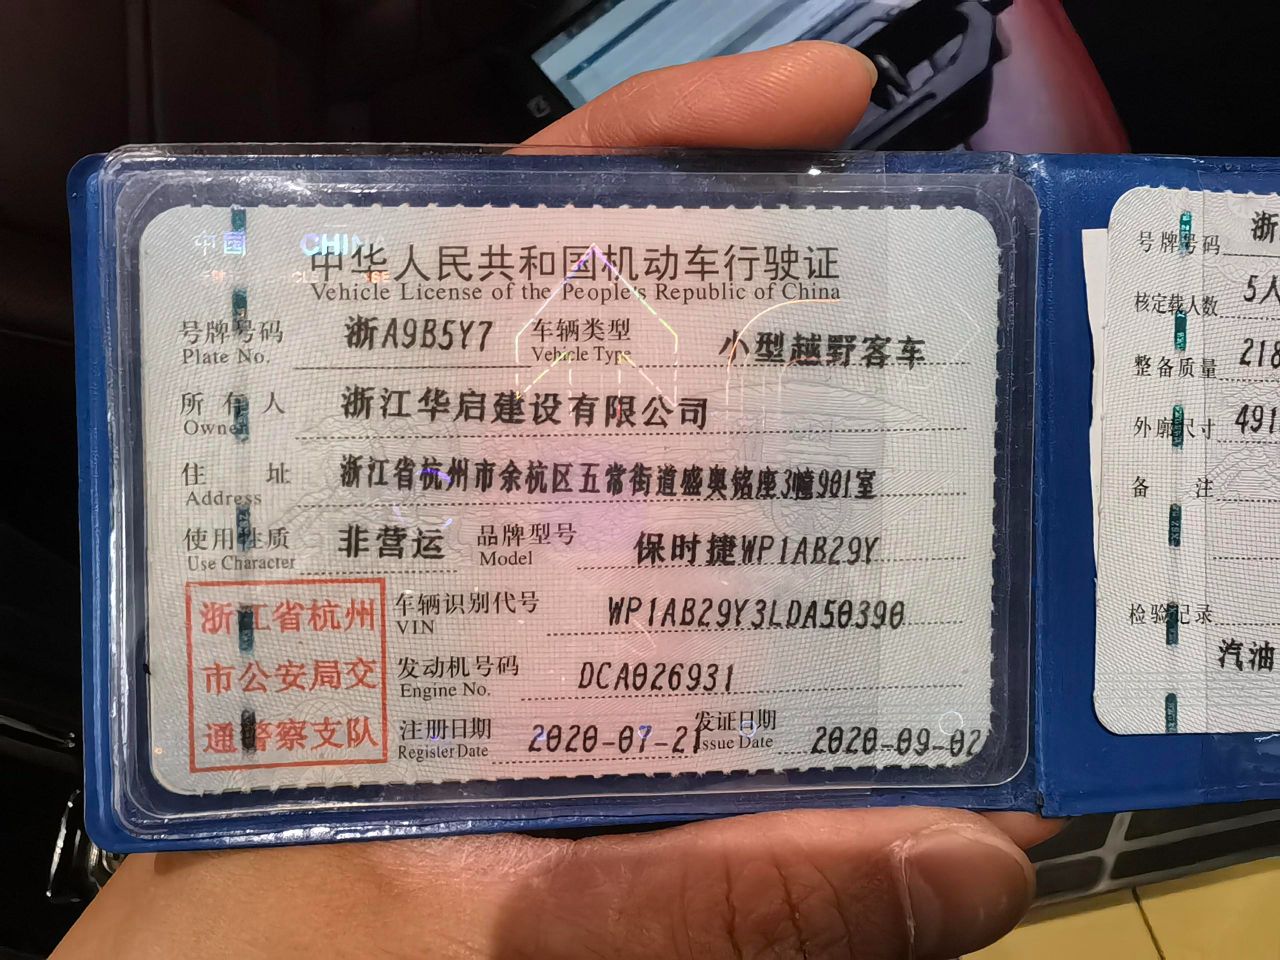 中国 CHINA
中华人民共和国机动车行驶证
Vehicle License of the People's Republic of China
号牌号码 浙A9B5Y7 车辆类型 小型越野客车
Plate No. Vehicle Type
所有人 浙江华启建设有限公司
Owner
住址 浙江省杭州市余杭区五常街道盛奥铭座3幢901室
Address
使用性质 非营运 品牌型号 保时捷WP1AB29Y
Use Character Model
浙江省杭州
市公安局交
通警察支队
车辆识别代号 WP1AB29Y3LDA50390
VIN
发动机号码 DCA026931
Engine No.
注册日期 2020-07-21 发证日期 2020-09-02
Register Date Issue Date
号牌号码 浙
核定载人数 5人
整备质量 218
外廓尺寸 491
备注
检验记录
汽油